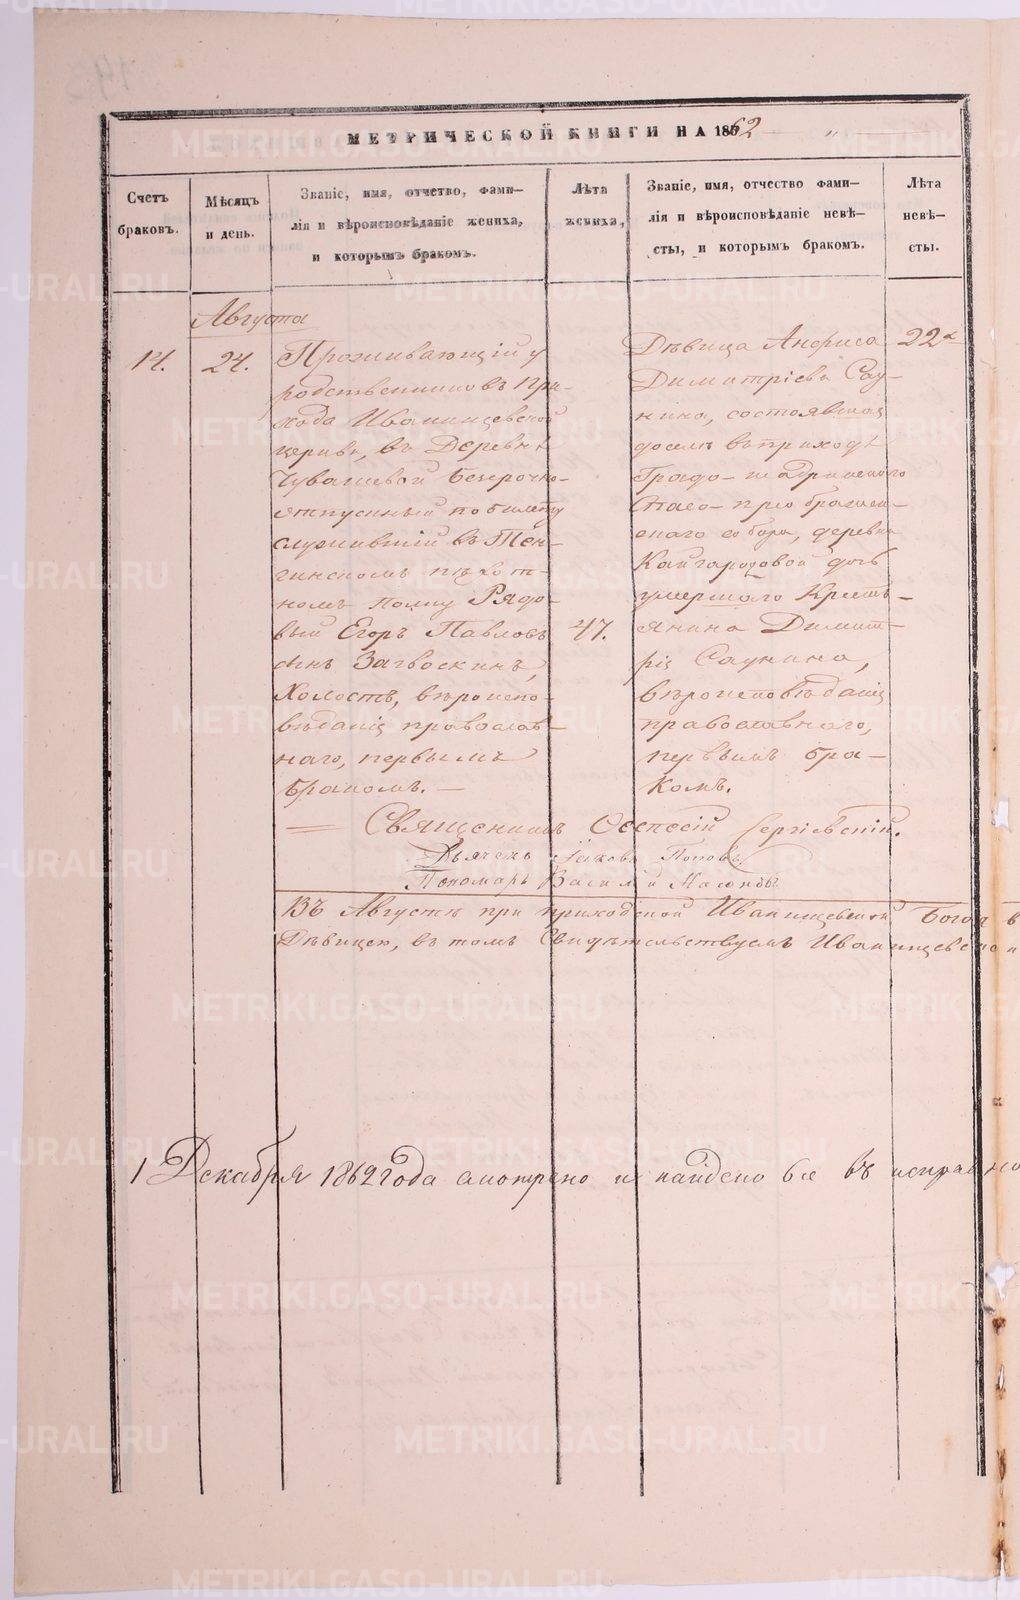 МЕТРИЧЕСКОЙ КНИГИ НА 1862
Счетъ браковъ.
Мѣсяцъ и день.
Званіе, имя, отчество, фами-
лія и вѣроисповѣданіе жениха,
и которымъ бракомъ.
Лѣта жениха,
Званіе, имя, отчество фами-
лія и вѣроисповѣданіе невѣ-
сты, и которымъ бракомъ.
Лѣта невѣ-
сты.
Августа
14.
24.
Проживающій у
родственниковъ при-
хода Иванищевской
церкви, въ Деревнѣ
Чувашевой безсрочно-
отпускный по билету
служившій въ Тен-
гинскомъ пѣхот-
номъ полку Рядо-
вый Егоръ Павловъ
сынъ Загвоскинъ,
Холостъ, вѣроиспо-
вѣданія православ-
наго, первымъ
бракомъ. —
47.
Дѣвица Анфиса
Димитріева Сау-
нина, состоявшая
доселѣ въ приходѣ
Градо-шадринскаго
Спасо-преображен-
скаго собора, деревни
Кайгородовой дочь
умершаго Кресть-
янина Димит-
рія Саунина,
вѣроисповѣданія
православнаго,
первымъ бра-
комъ.
22
Священникъ Сергіевскій.
Дьячекъ Іаковъ Поповъ
Пономарь Василій
Въ Августѣ при приходской Иванищевской Богоя в
Дѣвицею, въ томъ Свидѣтельствуемъ Иванищевской
1 Декабря 1862 года смотрено и найдено все въ исправно
METRIKI.GASO-URAL.RU